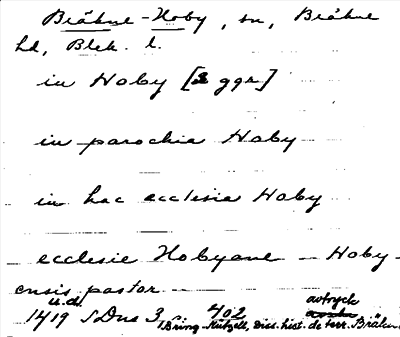 Bräkne-Hoby, sn, Bräkne
hd, Blek. l.
in Hoby [2 ggr]
in parochia Hoby
in hac ecclesia Hoby
ecclesie Hobyane — Hoby-
ensis pastor
u.d. 402 avtryck
1419 SDns 3, Bring-Kützell, Diss. hist. de terr. Bräkne